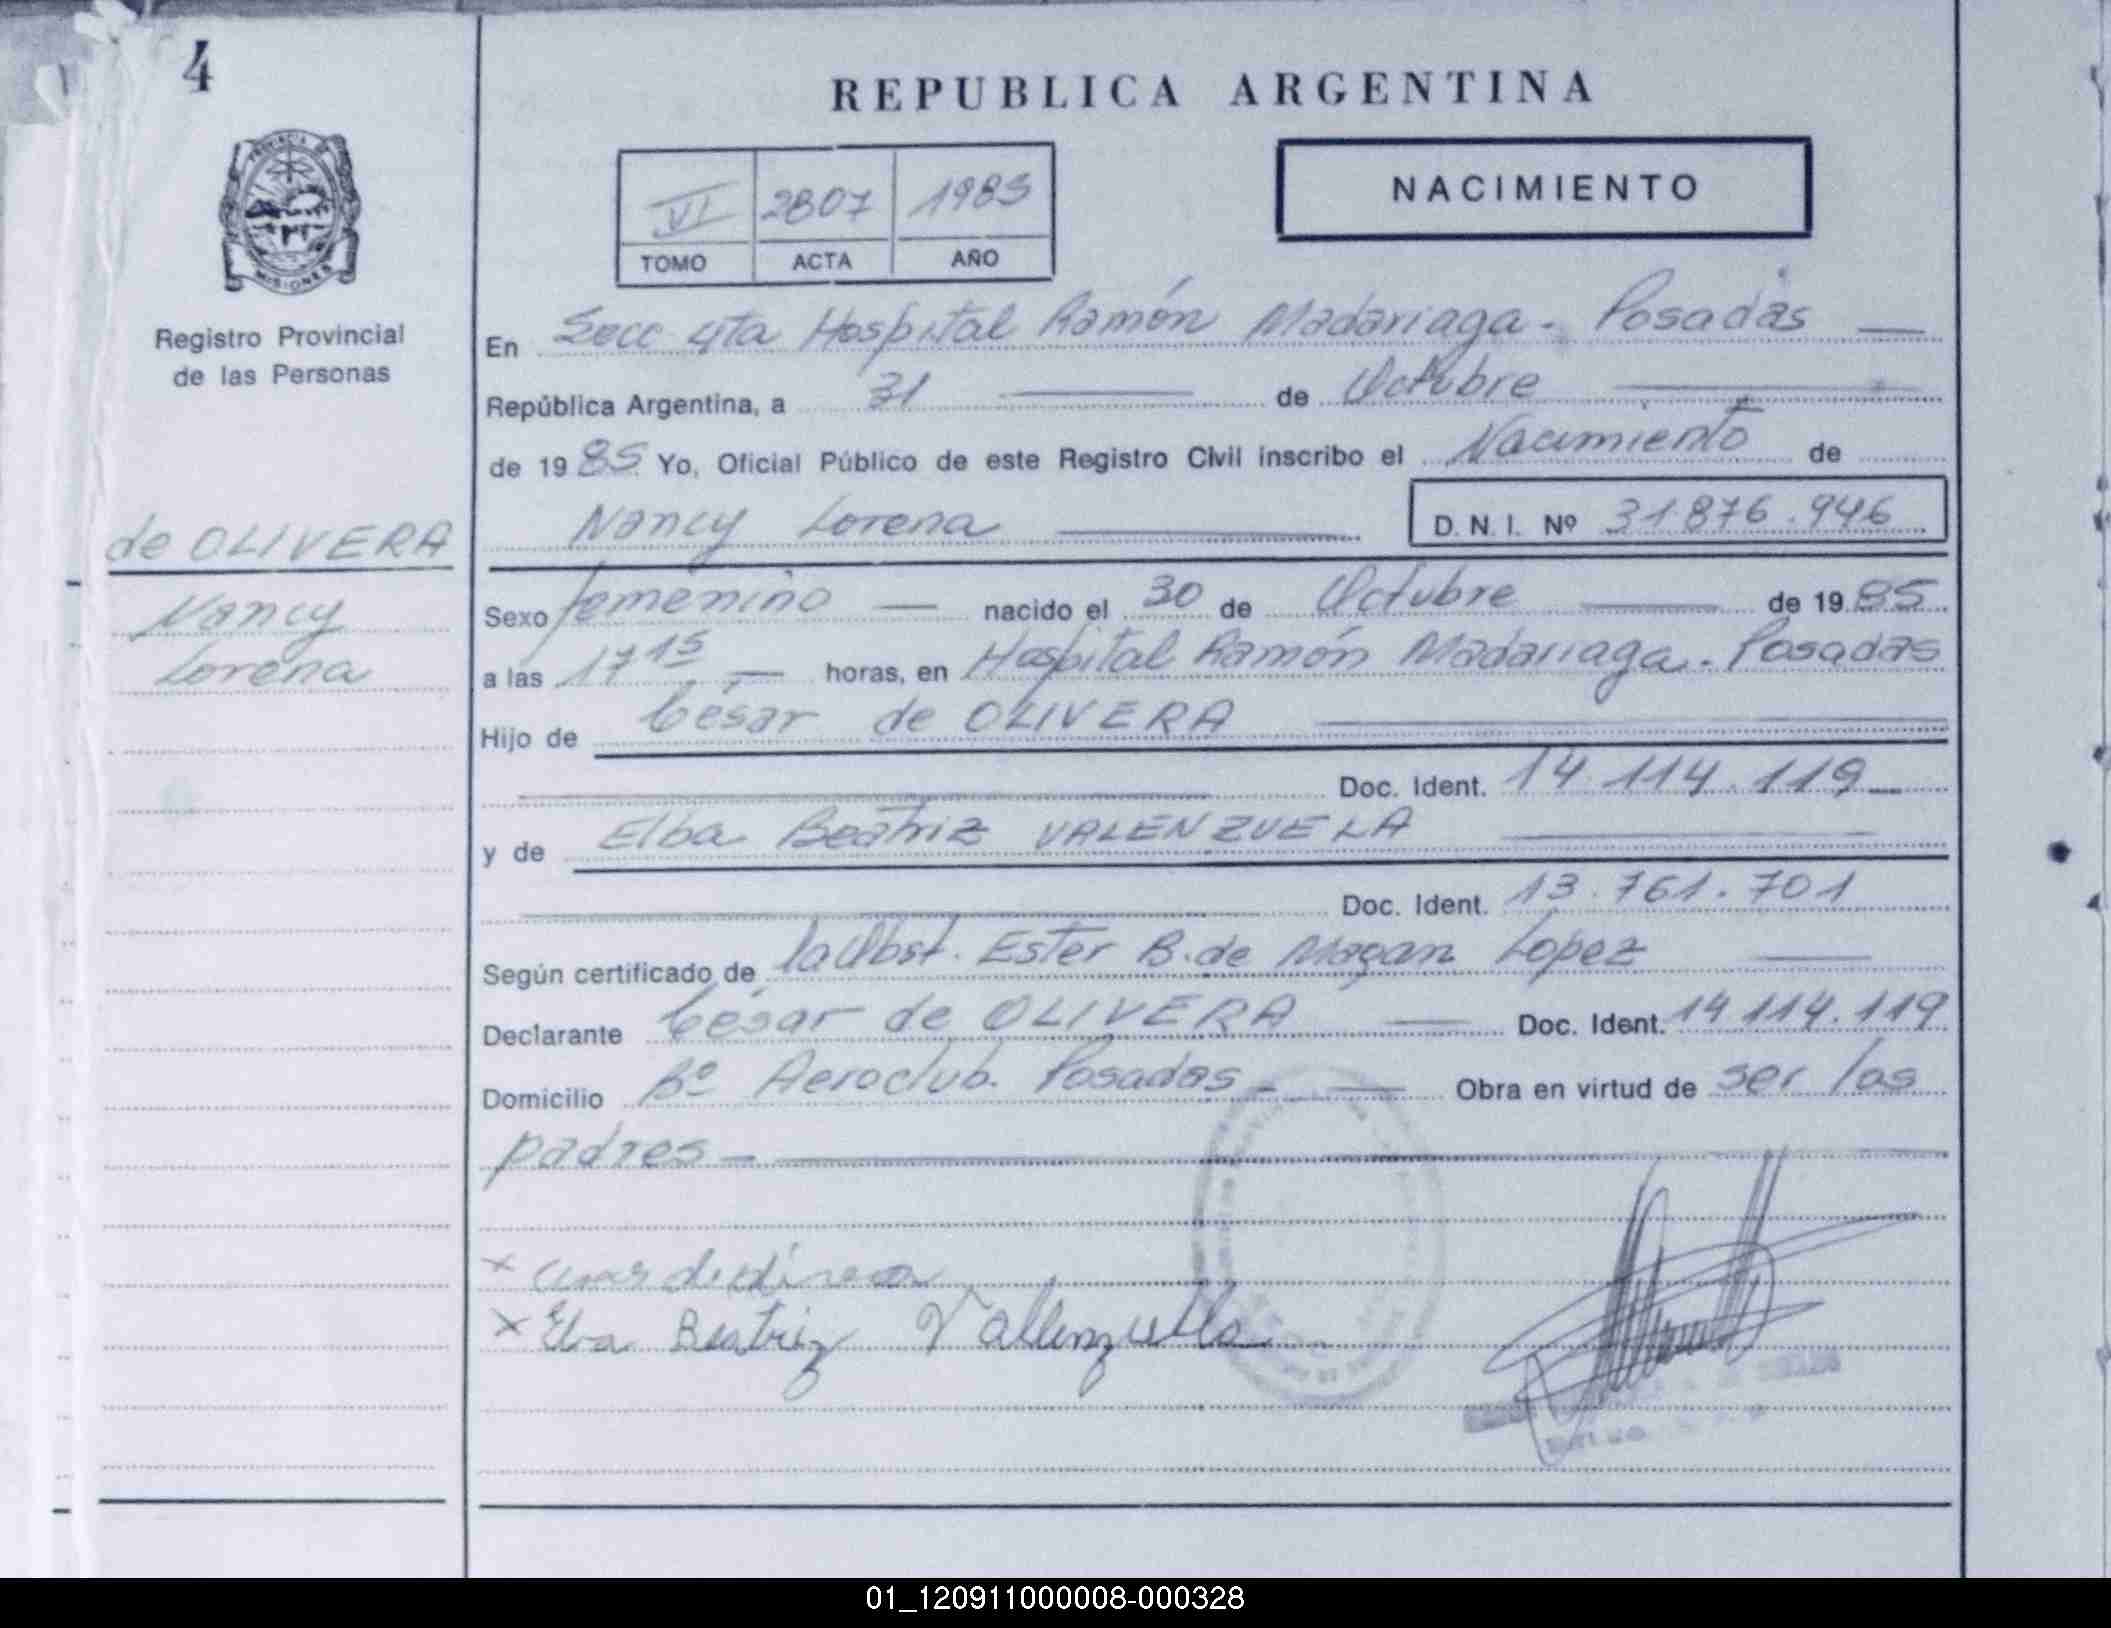 4
REPUBLICA ARGENTINA
PROVINCIA DE
MISIONES
VI 2807 1985
TOMO ACTA AÑO
NACIMIENTO
Registro Provincial
de las Personas
En Secc 4ta Hospital Ramón Madariaga - Posadas
República Argentina, a 31 de Octubre
de 1985 Yo, Oficial Público de este Registro Civil inscribo el Nacimiento de
Nancy Lorena D. N. I. Nº 31.876.946
de OLIVERA
Nancy
Lorena
Sexo femenino nacido el 30 de Octubre de 1985
a las 17 15 horas, en Hospital Ramón Madariaga - Posadas
Hijo de César de OLIVERA
Doc. Ident. 14.114.119
y de Elba Beatriz VALENZUELA
Doc. Ident. 13.761.701
Según certificado de la Obst. Ester B. de Lopez
Declarante César de OLIVERA Doc. Ident. 14.114.119
Domicilio Bº Aeroclub. Posadas - Obra en virtud de ser los
padres -
x
x Elva Beatriz Vallenzuella
01_120911000008-000328